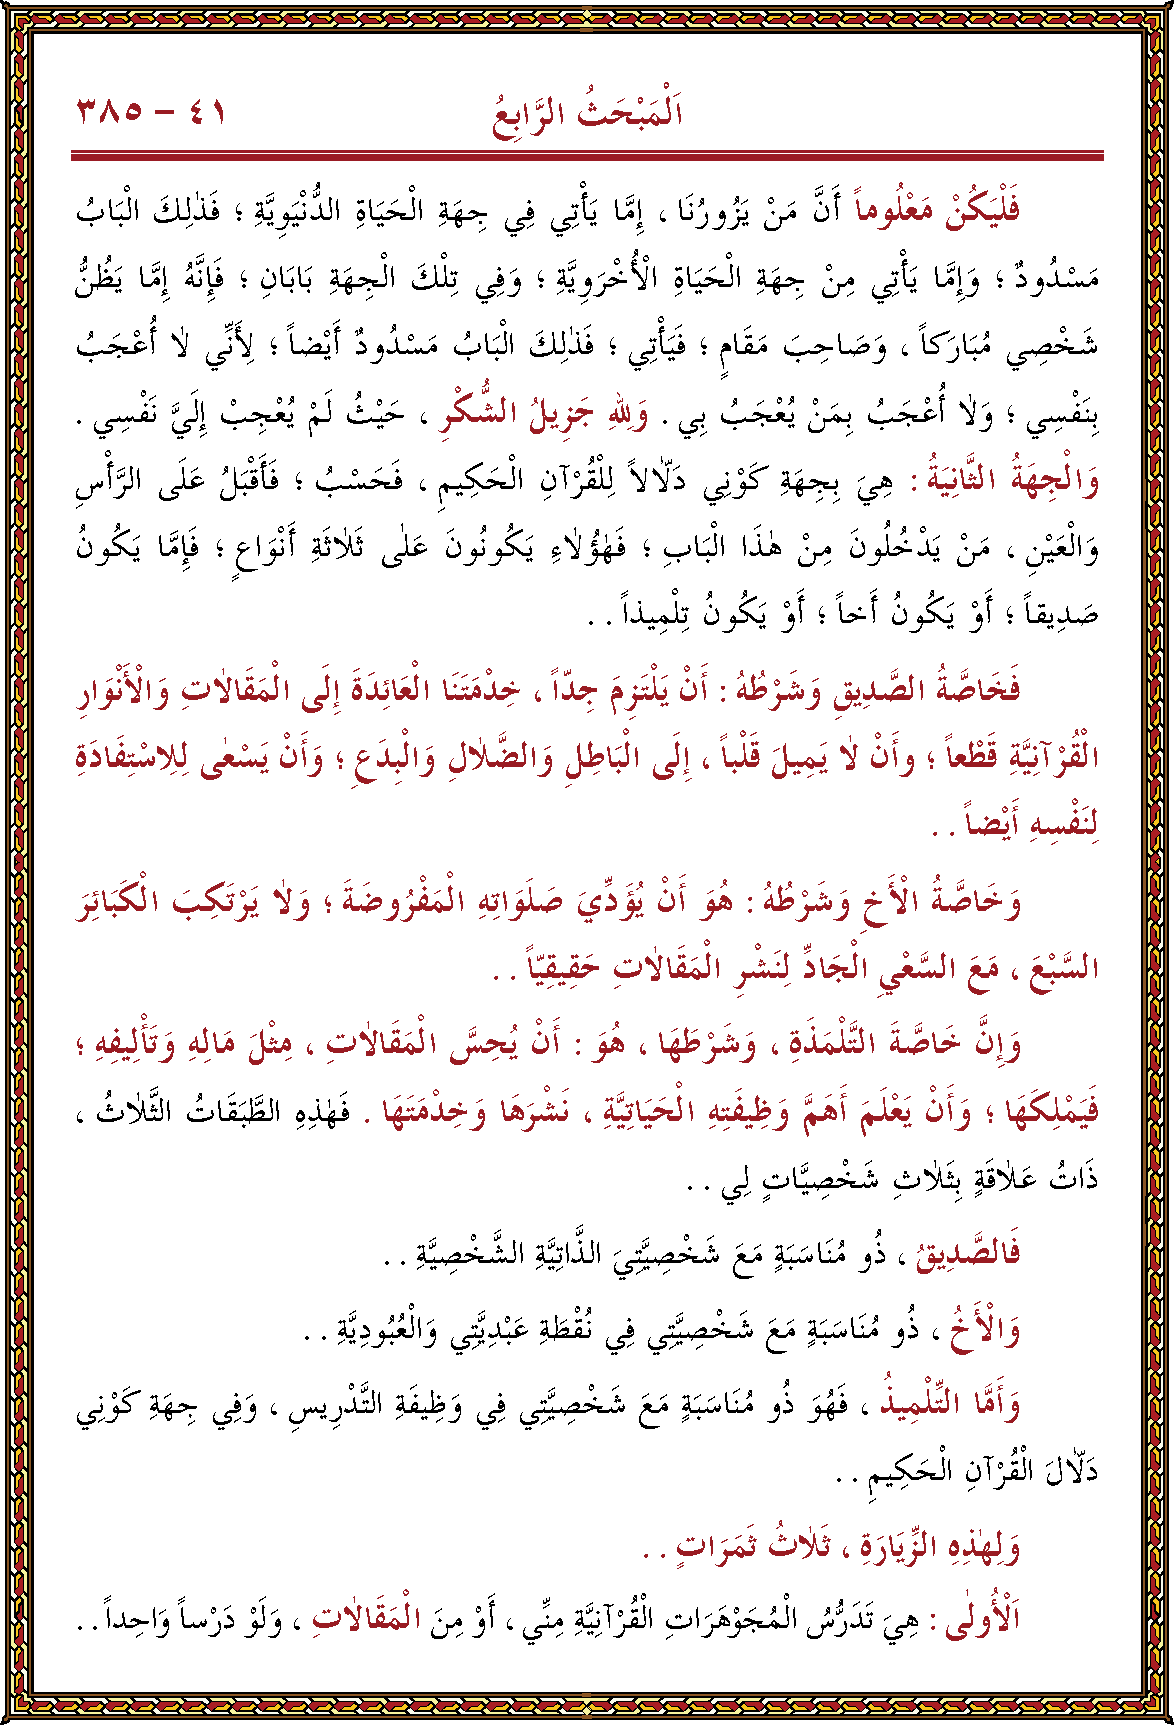 اَلْمَبْحَثُ الرَّابِعُ ٤١ – ٣٨٥
فَلْيَكُنْ مَعْلُوماً أَنَّ مَنْ يَزُورُنَا ، إِمَّا يَأْتِي فِي جِهَةِ الْحَيَاةِ الدُّنْيَوِيَّةِ ؛ فَذٰلِكَ الْبَابُ
مَسْدُودٌ ؛ وَإِمَّا يَأْتِي مِنْ جِهَةِ الْحَيَاةِ الْأُخْرَوِيَّةِ ؛ وَفِي تِلْكَ الْجِهَةِ بَابَانِ ؛ فَإِنَّهُ إِمَّا يَظُنُّ
شَخْصِي مُبَارَكاً ، وَصَاحِبَ مَقَامٍ ؛ فَيَأْتِي ؛ فَذٰلِكَ الْبَابُ مَسْدُودٌ أَيْضاً ؛ لِأَنِّي لَا أُعْجَبُ
بِنَفْسِي ؛ وَلَا أُعْجَبُ بِمَنْ يُعْجَبُ بِي . وَلِلّٰهِ جَزِيلُ الشُّكْرِ ، حَيْثُ لَمْ يُعْجِبْ إِلَيَّ نَفْسِي .
وَالْجِهَةُ الثَّانِيَةُ : هِيَ بِجِهَةِ كَوْنِي دَلَّالاً لِلْقُرْآنِ الْحَكِيمِ ، فَحَسْبُ ؛ فَأَقْبَلُ عَلَى الرَّأْسِ
وَالْعَيْنِ ، مَنْ يَدْخُلُونَ مِنْ هٰذَا الْبَابِ ؛ فَهٰؤُلَاءِ يَكُونُونَ عَلٰى ثَلَاثَةِ أَنْوَاعٍ ؛ فَإِمَّا يَكُونُ
صَدِيقاً ؛ أَوْ يَكُونُ أَخاً ؛ أَوْ يَكُونُ تِلْمِيذاً . .
فَخَاصَّةُ الصَّدِيقِ وَشَرْطُهُ : أَنْ يَلْتَزِمَ جِدّاً ، خِدْمَتَنَا الْعَائِدَةَ إِلَى الْمَقَالَاتِ وَالْأَنْوَارِ
الْقُرْآنِيَّةِ قَطْعاً ؛ وأَنْ لَا يَمِيلَ قَلْباً ، إِلَى الْبَاطِلِ وَالضَّلَالِ وَالْبِدَعِ ؛ وَأَنْ يَسْعٰى لِلِاسْتِفَادَةِ
لِنَفْسِهِ أَيْضاً . .
وَخَاصَّةُ الْأَخِ وَشَرْطُهُ : هُوَ أَنْ يُؤَدِّيَ صَلَوَاتِهِ الْمَفْرُوضَةَ ؛ وَلَا يَرْتَكِبَ الْكَبَائِرَ
السَّبْعَ ، مَعَ السَّعْيِ الْجَادِّ لِنَشْرِ الْمَقَالَاتِ حَقِيقِيّاً . .
وَإِنَّ خَاصَّةَ التَّلْمَذَةِ ، وَشَرْطَهَا ، هُوَ : أَنْ يُحِسَّ الْمَقَالَاتِ ، مِثْلَ مَالِهِ وَتَأْلِيفِهِ ؛
فَيَمْلِكَهَا ؛ وَأَنْ يَعْلَمَ أَهَمَّ وَظِيفَتِهِ الْحَيَاتِيَّةِ ، نَشْرَهَا وَخِدْمَتَهَا . فَهٰذِهِ الطَّبَقَاتُ الثَّلَاثُ ،
ذَاتُ عَلَاقَةٍ بِثَلَاثِ شَخْصِيَّاتٍ لِي . .
فَالصَّدِيقُ ، ذُو مُنَاسَبَةٍ مَعَ شَخْصِيَّتِيَ الذَّاتِيَّةِ الشَّخْصِيَّةِ . .
وَالْأَخُ ، ذُو مُنَاسَبَةٍ مَعَ شَخْصِيَّتِي فِي نُقْطَةِ عَبْدِيَّتِي وَالْعُبُودِيَّةِ . .
وَأَمَّا التِّلْمِيذُ ، فَهُوَ ذُو مُنَاسَبَةٍ مَعَ شَخْصِيَّتِي فِي وَظِيفَةِ التَّدْرِيسِ ، وَفِي جِهَةِ كَوْنِي
دَلَّالَ الْقُرْآنِ الْحَكِيمِ . .
وَلِهٰذِهِ الزِّيَارَةِ ، ثَلَاثُ ثَمَرَاتٍ . .
اَلْأُولٰى : هِيَ تَدَرُّسُ الْمُجَوْهَرَاتِ الْقُرْآنِيَّةِ مِنِّي ، أَوْ مِنَ الْمَقَالَاتِ ، وَلَوْ دَرْساً وَاحِداً . .